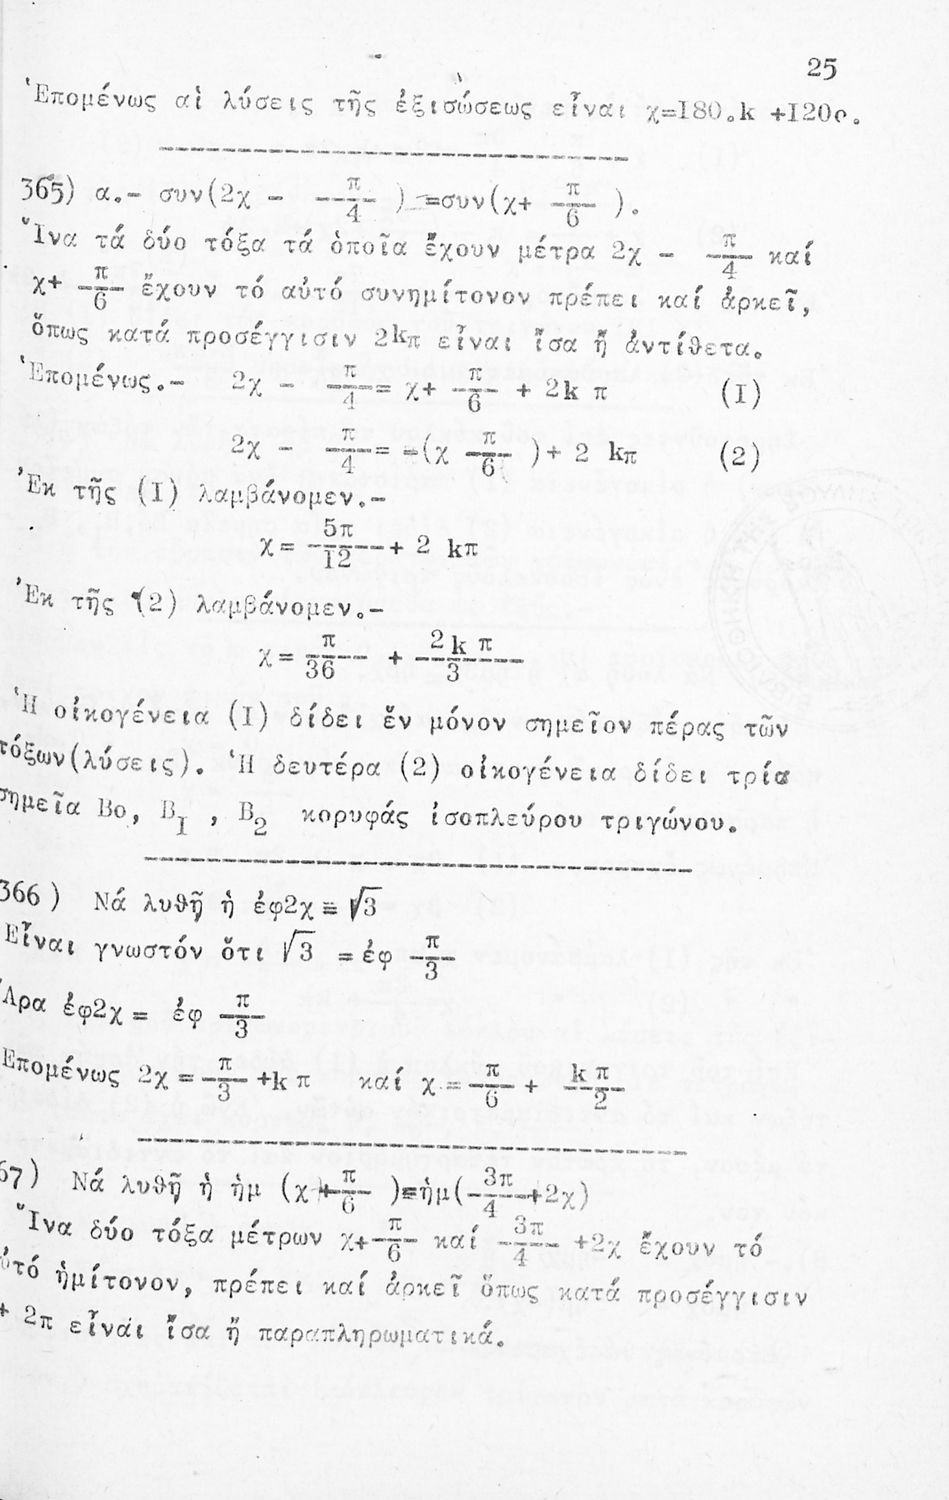 25
Ἑπομένως αἱ λύσεις τῆς ἐξισώσεως εἶναι χ=I80.k +I20ο.
365) α.- συν(2χ - π/4 ) =συν(χ+ π/6 ).
Ἵνα τά δύο τόξα τά ὁποῖα ἔχουν μέτρα 2χ - π/4 καί
χ+ π/6 ἔχουν τό αὐτό συνημίτονον πρέπει καί ἀρκεῖ,
ὅπως κατά προσέγγισιν 2kπ εἶναι ἴσα ἤ ἀντίθετα.
Ἑπομένως.- 2χ - π/4 = χ+ π/6 + 2k π (I)
2χ - π/4 = -(χ π/6 )+ 2 kπ (2)
Ἐκ τῆς (I) λαμβάνομεν.-
χ= 5π/I2 + 2 kπ
Ἐκ τῆς (2) λαμβάνομεν.-
χ= π/36 + 2k π/3
Ἡ οἰκογένεια (I) δίδει ἕν μόνον σημεῖον πέρας τῶν
τόξων(λύσεις). Ἡ δευτέρα (2) οἰκογένεια δίδει τρία
σημεῖα Βο, Β₁ , Β₂ κορυφάς ἰσοπλεύρου τριγώνου.
366) Νά λυθῇ ἡ ἐφ2χ = √3
Εἶναι γνωστόν ὅτι √3 =ἐφ π/3
Ἄρα ἐφ2χ= ἐφ π/3
Ἑπομένως 2χ = π/3 +k π καί χ = π/6 + k π/2
67) Νά λυθῇ ἡ ἡμ (χ+ π/6 )=ἡμ( 3π/4 +2χ)
Ἵνα δύο τόξα μέτρων χ+ π/6 καί 3π/4 +2χ ἔχουν τό
ὐτό ἡμίτονον, πρέπει καί ἀρκεῖ ὅπως κατά προσέγγισιν
+ 2π εἶναι ἴσα ἤ παραπληρωματικά.